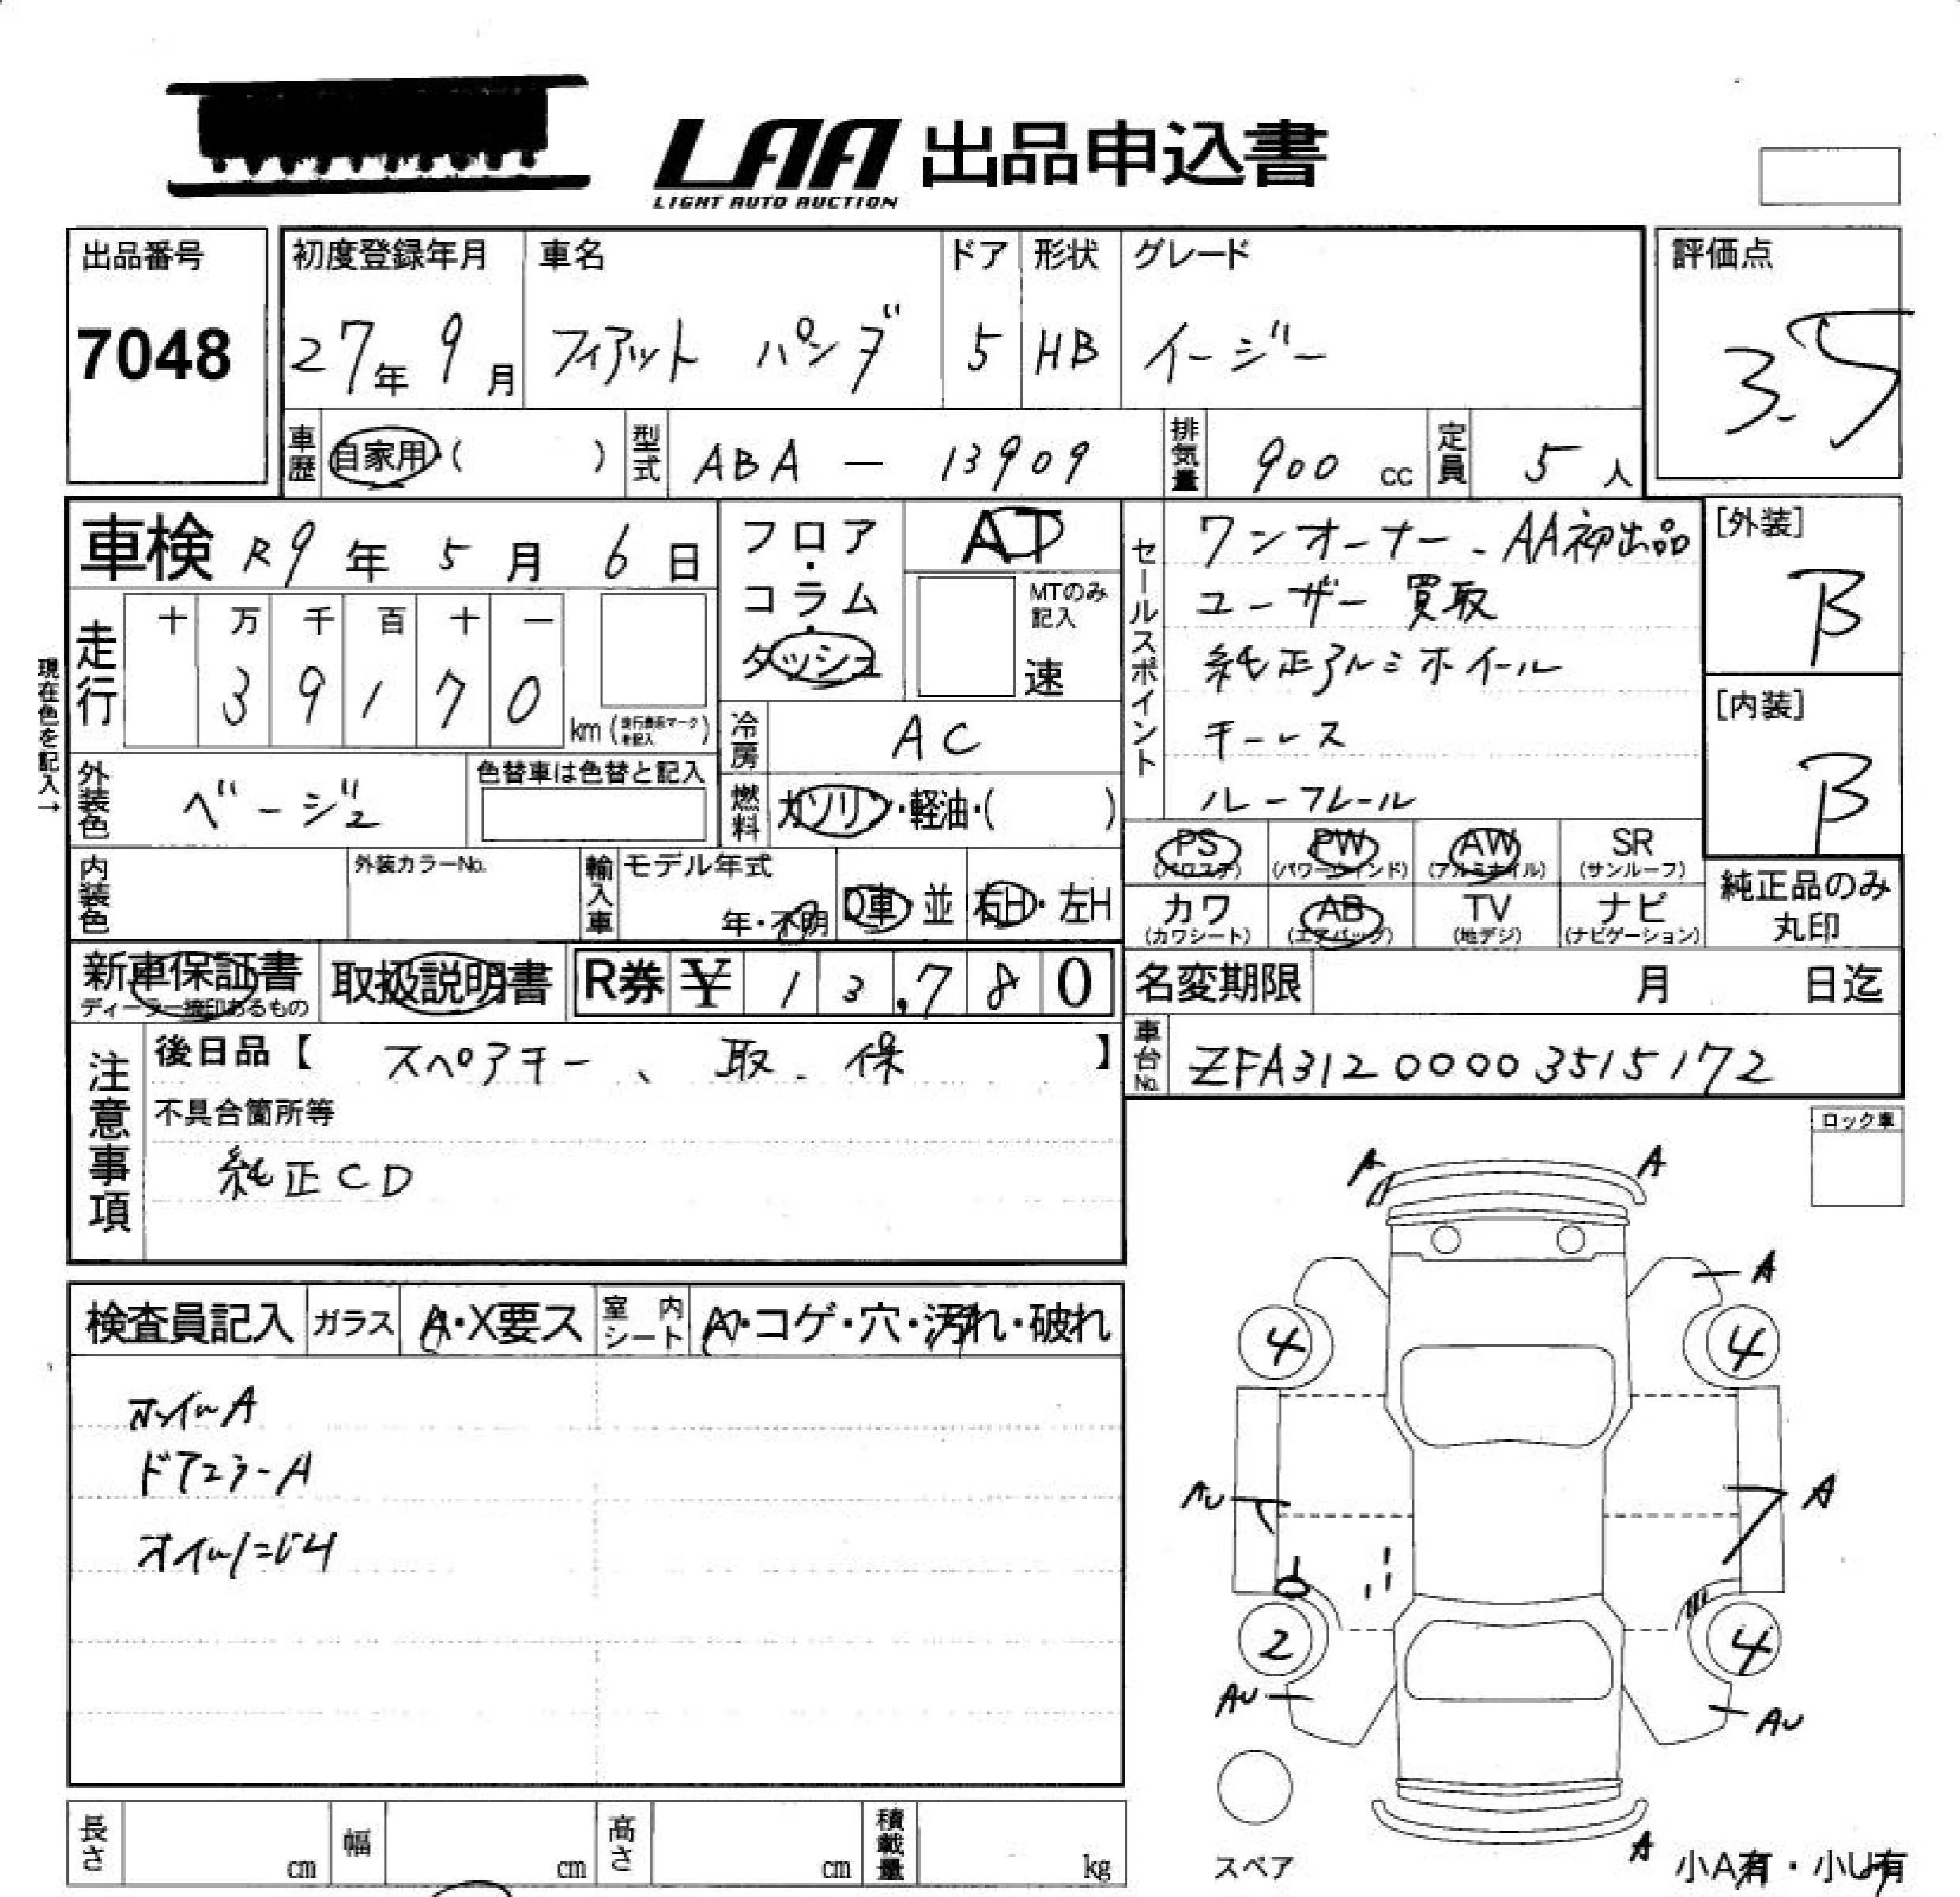 LAA 出品申込書
LIGHT AUTO AUCTION
出品番号
7048
初度登録年月
27年 9月
車名
フィアット パンダ
ドア
5
形状
HB
グレード
イージー
評価点
3.5
車歴 自家用・( )
型式 ABA — 13909
排気量 900 cc
定員 5 人
車検 R9年 5月 6日
フロア・コラム・ダッシュ
AT
MTのみ記入
速
セールスポイント
ワンオーナー、AA初出品
ユーザー買取
純正アルミホイール
キーレス
ルーフレール
[外装]
B
[内装]
B
現在色を記入→
走行
十 万 千 百 十 一
3 9 1 7 0
km (走行表示マークを記入)
冷房 AC
外装色 ベージュ
色替車は色替と記入
燃料 ガソリン・軽油・( )
内装色
外装カラーNo.
輸入車
モデル年式
年・不明
D車・並
右H・左H
PS (パワステ)
PW (パワーウインド)
AW (アルミホイル)
SR (サンルーフ)
カワ (カワシート)
AB (エアバッグ)
TV (地デジ)
ナビ (ナビゲーション)
純正品のみ丸印
新車保証書
ディーラー捺印あるもの
取扱説明書
R券 ¥ 13,780
名変期限 月 日迄
車台No. ZFA31200003515172
注意事項
後日品【 スペアキー、取、保 】
不具合箇所等
純正CD
ロック車
検査員記入
ガラス A・X要ス
室内シート A・コゲ・穴・汚れ・破れ
ホイルA
ドアミラーA
オイルにじみ
A A
A
4 4
AU A
2 4
AU AU
A
スペア
小A有・小U有
長さ cm
幅 cm
高さ cm
積載量 kg